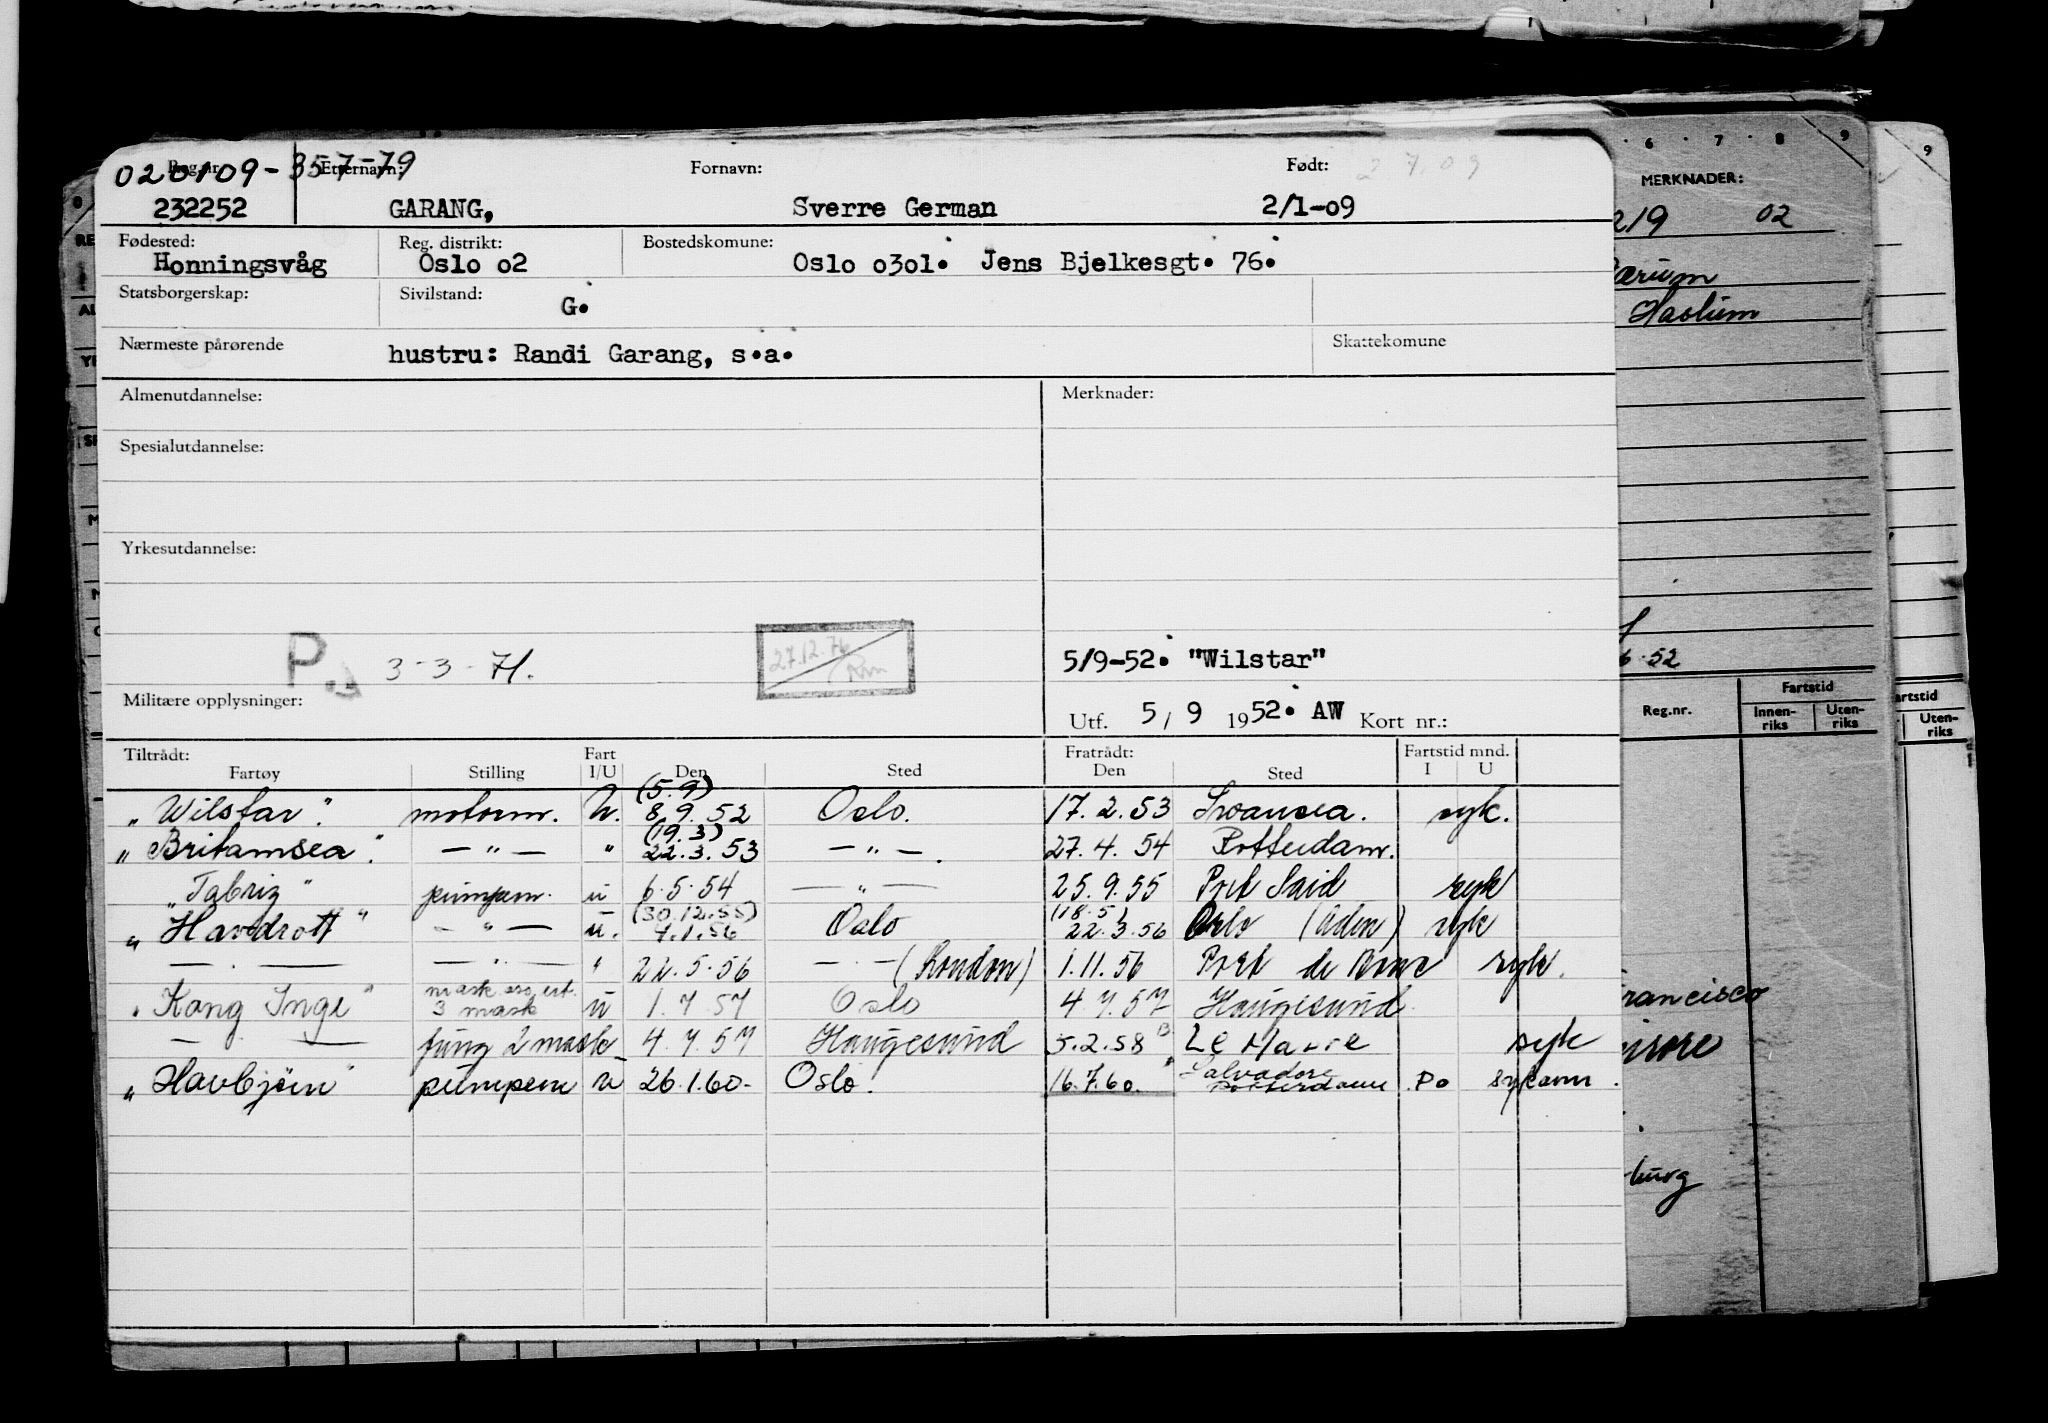 020109-35779
Reg.nr. Etternavn: Fornavn: Født:
232252 GARANG, Sverre German 2/1-09
Fødested: Reg. distrikt: Bostedskomune:
Honningsvåg Oslo o2 Oslo o3o1. Jens Bjelkesgt. 76.
Statsborgerskap: Sivilstand: G.
Nærmeste pårørende hustru: Randi Garang, s.a. Skattekomune
Almenutdannelse: Merknader:
Spesialutdannelse:
Yrkesutdannelse:
P. 3-3-71. 27.12.76
5/9-52. "Wilstar"
Militære opplysninger: Utf. 5/9 1952. AW Kort nr.:
Tiltrådt: Fart Fratrådt: Fartstid mnd.
Fartøy Stilling I/U Den Sted Den Sted I U
(5.9)
"Wilstar". motorm. u. 8.9.52 Oslo. 17.2.53 Swansea. syk.
(19.3)
"Britamsea". — " — " 22.3.53 — " —. 27.4.54 Rotterdam.
"Tabriz" pumpem. u 6.5.54 — " — 25.9.55 Port Said syk
(30.12.55) (18.5)
"Havdrott" — " — u. 7.1.56 Oslo 22.3.56 Oslo (Aden) syk
— . — — " — " 22.5.56 — . — (London) 1.11.56 Port de syk.
"Kong Inge" 3 mask u 1.7.57 Oslo 4.7.57 Haugesund
— . — fung 2 mask 4.7.57 Haugesund 5.2.58 Le Havre syk
"Havbjørn" pumpem u 26.1.60- Oslo. 16.7.60. Salvadore Rotterdam Po sykavm.
6 7 8 9
MERKNADER:
219 02
Haslum
6.52
Fartstid
Reg.nr. Innen-riks Uten-riks
rtstid
Uten-riks
rancisco
burg
9